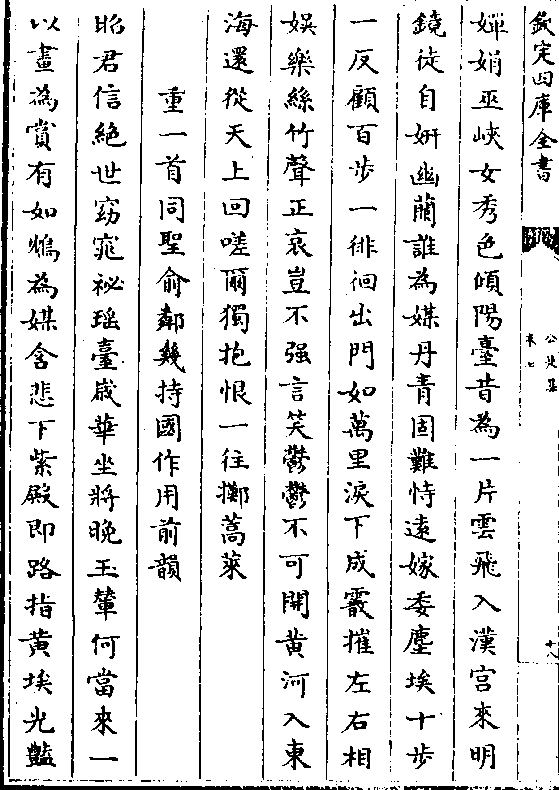 欽定四庫全書
公是集
卷七
十八
嬋娟巫峽女秀色傾陽臺昔為一片雲飛入漢宮來明
鏡徒自妍幽蘭誰為媒丹青固難恃遠嫁委塵埃十步
一反顧百步一徘徊出門如萬里淚下成霰摧左右相
娛樂絲竹聲正哀豈不强言笑鬱鬱不可開黄河入東
海還從天上回嗟爾獨抱恨一往擲蒿萊
重一首同聖俞鄰幾持國作用前韻
昭君信絶世窈窕祕瑶臺歲華坐將晚玉輦何當來一
以畫為賞有如鴆為媒含悲下紫殿即路指黄埃光豔